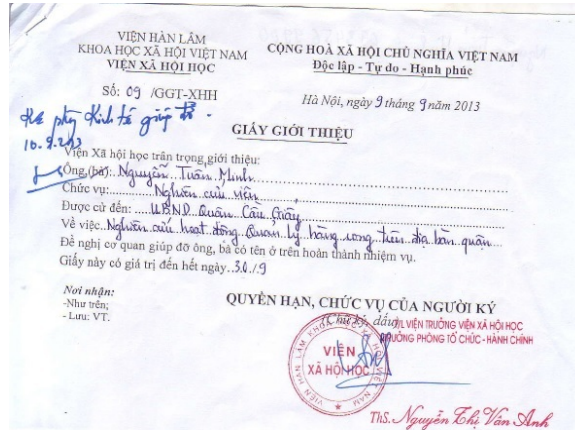 VIỆN HÀN LÂM
KHOA HỌC XÃ HỘI VIỆT NAM
VIỆN XÃ HỘI HỌC
CỘNG HOÀ XÃ HỘI CHỦ NGHĨA VIỆT NAM
Độc lập - Tự do - Hạnh phúc
Số: 09 /GGT-XHH
Hà Nội, ngày 9 tháng 9 năm 2013
phòng Kinh tế giúp đỡ.
10.9.2013
GIẤY GIỚI THIỆU
Viện Xã hội học trân trọng giới thiệu:
Ông (bà): Nguyễn Tuấn Minh
Chức vụ: Nghiên cứu viên
Được cử đến: UBND Quận Cầu Giấy
Về việc: Nghiên cứu hoạt động Quản lý hàng rong trên địa bàn quận
Đề nghị cơ quan giúp đỡ ông, bà có tên ở trên hoàn thành nhiệm vụ.
Giấy này có giá trị đến hết ngày 30/9
Nơi nhận:
-Như trên;
- Lưu: VT.
QUYỀN HẠN, CHỨC VỤ CỦA NGƯỜI KÝ
(Chữ ký, dấu)
T/L VIỆN TRƯỞNG VIỆN XÃ HỘI HỌC
TRƯỞNG PHÒNG TỔ CHỨC - HÀNH CHÍNH
VIỆN HÀN LÂM KHOA HỌC XÃ HỘI VIỆT NAM
VIỆN
XÃ HỘI HỌC
ThS. Nguyễn Thị Vân Anh